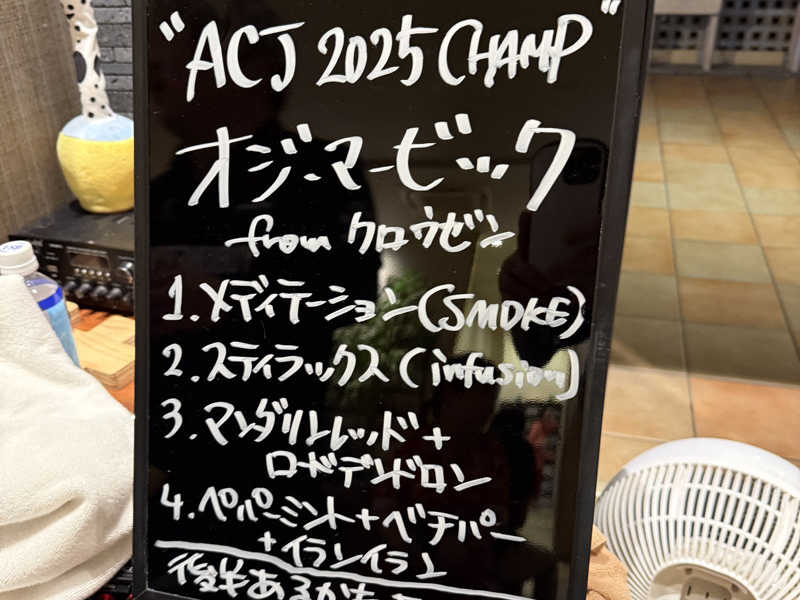 "ACJ 2025 CHAMP"
オジマービック
from クロウゼン
1. メディテーション(SMOKE)
2. スティラックス(infusion)
3. マンダリンレッド+
ロードデンドロン
4. ペパーミント+ベチパー
+イランイラン
後半あるかも